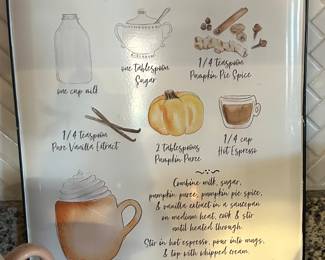 one tablespoon
Sugar
1/4 teaspoon
Pumpkin Pie Spice
one cup milk
1/4 teaspoon
Pure Vanilla Extract
2 tablespoons
Pumpkin Puree
1/4 cup
Hot Espresso
Combine milk, sugar,
pumpkin puree, pumpkin pie spice,
& vanilla extract in a saucepan
on medium heat, cook & stir
until heated through.
Stir in hot espresso, pour into mugs,
& top with whipped cream.